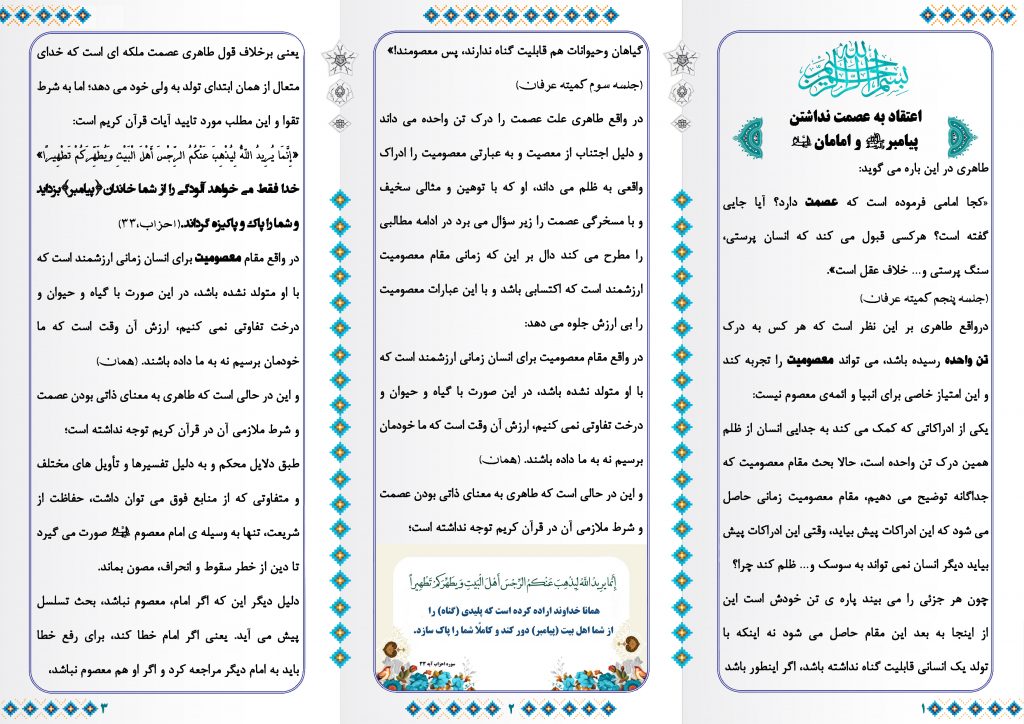 بسم الله الرحمن الرحیم
اعتقاد به عصمت نداشتن
پیامبر ﷺ و امامان
طاهری در این باره می گوید:
«کجا امامی فرموده است که عصمت دارد؟ آیا جایی
گفته است؟ هرکسی قبول می کند که انسان پرستی،
سنگ پرستی و... خلاف عقل است».
(جلسه پنجم کمیته عرفان)
درواقع طاهری بر این نظر است که هر کس به درک
تن واحده رسیده باشد، می تواند معصومیت را تجربه کند
و این امتیاز خاصی برای انبیا و ائمه‌ی معصوم نیست:
یکی از ادراکاتی که کمک می کند به جدایی انسان از ظلم
همین درک تن واحده است، حالا بحث مقام معصومیت که
جداگانه توضیح می دهیم، مقام معصومیت زمانی حاصل
می شود که این ادراکات پیش بیاید، وقتی این ادراکات پیش
بیاید دیگر انسان نمی تواند به سوسک و... ظلم کند چرا؟
چون هر جزئی را می بیند پاره ی تن خودش است این
از اینجا به بعد این مقام حاصل می شود نه اینکه با
تولد یک انسانی قابلیت گناه نداشته باشد، اگر اینطور باشد
۱
گیاهان وحیوانات هم قابلیت گناه ندارند، پس معصومند!»
(جلسه سوم کمیته عرفان)
در واقع طاهری علت عصمت را درک تن واحده می داند
و دلیل اجتناب از معصیت و به عبارتی معصومیت را ادراک
واقعی به ظلم می داند، او که با توهین و مثالی سخیف
و با مسخرگی عصمت را زیر سؤال می برد در ادامه مطالبی
را مطرح می کند دال بر این که زمانی مقام معصومیت
ارزشمند است که اکتسابی باشد و با این عبارات معصومیت
را بی ارزش جلوه می دهد:
در واقع مقام معصومیت برای انسان زمانی ارزشمند است که
با او متولد نشده باشد، در این صورت با گیاه و حیوان و
درخت تفاوتی نمی کنیم، ارزش آن وقت است که ما خودمان
برسیم نه به ما داده باشند. (همان)
و این در حالی است که طاهری به معنای ذاتی بودن عصمت
و شرط ملازمی آن در قرآن کریم توجه نداشته است؛
إِنَّمَا يُرِيدُ اللَّهُ لِيُذْهِبَ عَنْكُمُ الرِّجْسَ أَهْلَ الْبَيْتِ وَيُطَهِّرَكُمْ تَطْهِيراً
همانا خداوند اراده کرده است که پلیدی (گناه) را
از شما اهل بیت (پیامبر) دور کند و کاملًا شما را پاک سازد.
سوره احزاب آیه ۳۳
۲
یعنی برخلاف قول طاهری عصمت ملکه ای است که خدای
متعال از همان ابتدای تولد به ولی خود می دهد؛ اما به شرط
تقوا و این مطلب مورد تایید آیات قرآن کریم است:
«إِنَّمَا يُرِيدُ اللَّهُ لِيُذْهِبَ عَنْكُمُ الرِّجْسَ أَهْلَ الْبَيْتِ وَيُطَهِّرَكُمْ تَطْهِيرًا»
خدا فقط می خواهد آلودگی را از شما خاندان (پیامبر) بزداید
و شما را پاک و پاکیزه گرداند. (احزاب،۳۳)
در واقع مقام معصومیت برای انسان زمانی ارزشمند است که
با او متولد نشده باشد، در این صورت با گیاه و حیوان و
درخت تفاوتی نمی کنیم، ارزش آن وقت است که ما
خودمان برسیم نه به ما داده باشند. (همان)
و این در حالی است که طاهری به معنای ذاتی بودن عصمت
و شرط ملازمی آن در قرآن کریم توجه نداشته است؛
طبق دلایل محکم و به دلیل تفسیرها و تأویل های مختلف
و متفاوتی که از منابع فوق می توان داشت، حفاظت از
شریعت، تنها به وسیله ی امام معصوم صورت می گیرد
تا دین از خطر سقوط و انحراف، مصون بماند.
دلیل دیگر این که اگر امام، معصوم نباشد، بحث تسلسل
پیش می آید. یعنی اگر امام خطا کند، برای رفع خطا
باید به امام دیگر مراجعه کرد و اگر او هم معصوم نباشد،
۳